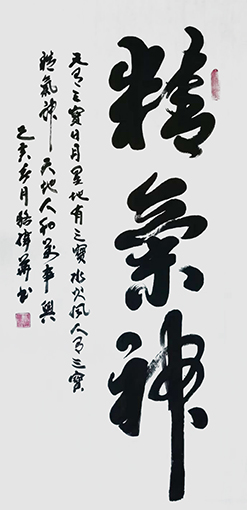 精氣神
天有三寶日月星地有三寶水火風人有三寶
精氣神天地人和萬事興
己亥春月駱偉華書